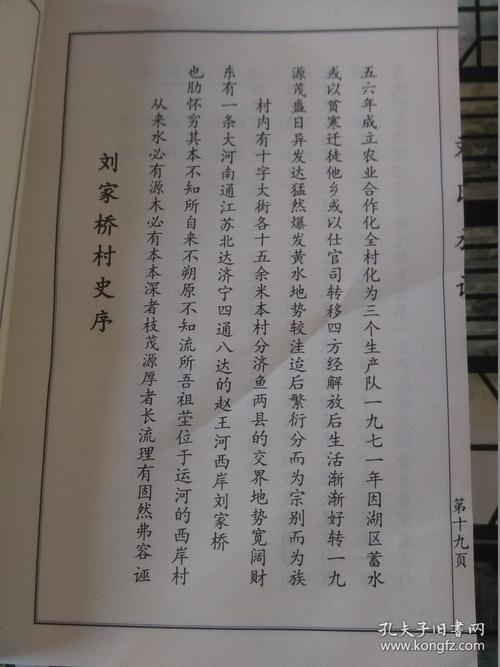 刘家桥村史序
从来水必有源木必有本本深者枝茂源厚者长流理有固然弗容诬
也肋怀穷其本不知所自来不朔原不知流所吾祖茔位于运河的西岸村
东有一条大河南通江苏北达济宁四通八达的赵王河西岸刘家桥
村内有十字大街各十五余米本村分济鱼两县的交界地势宽阔财
源茂盛日异发达猛然爆发黄水地势较洼迨后繁衍分而为宗别而为族
或以贫寒迁徙他乡或以仕官司转移四方经解放后生活渐渐好转一九
五六年成立农业合作化全村化为三个生产队一九七一年因湖区蓄水
第十九页
孔夫子旧书网
www.kongfz.com